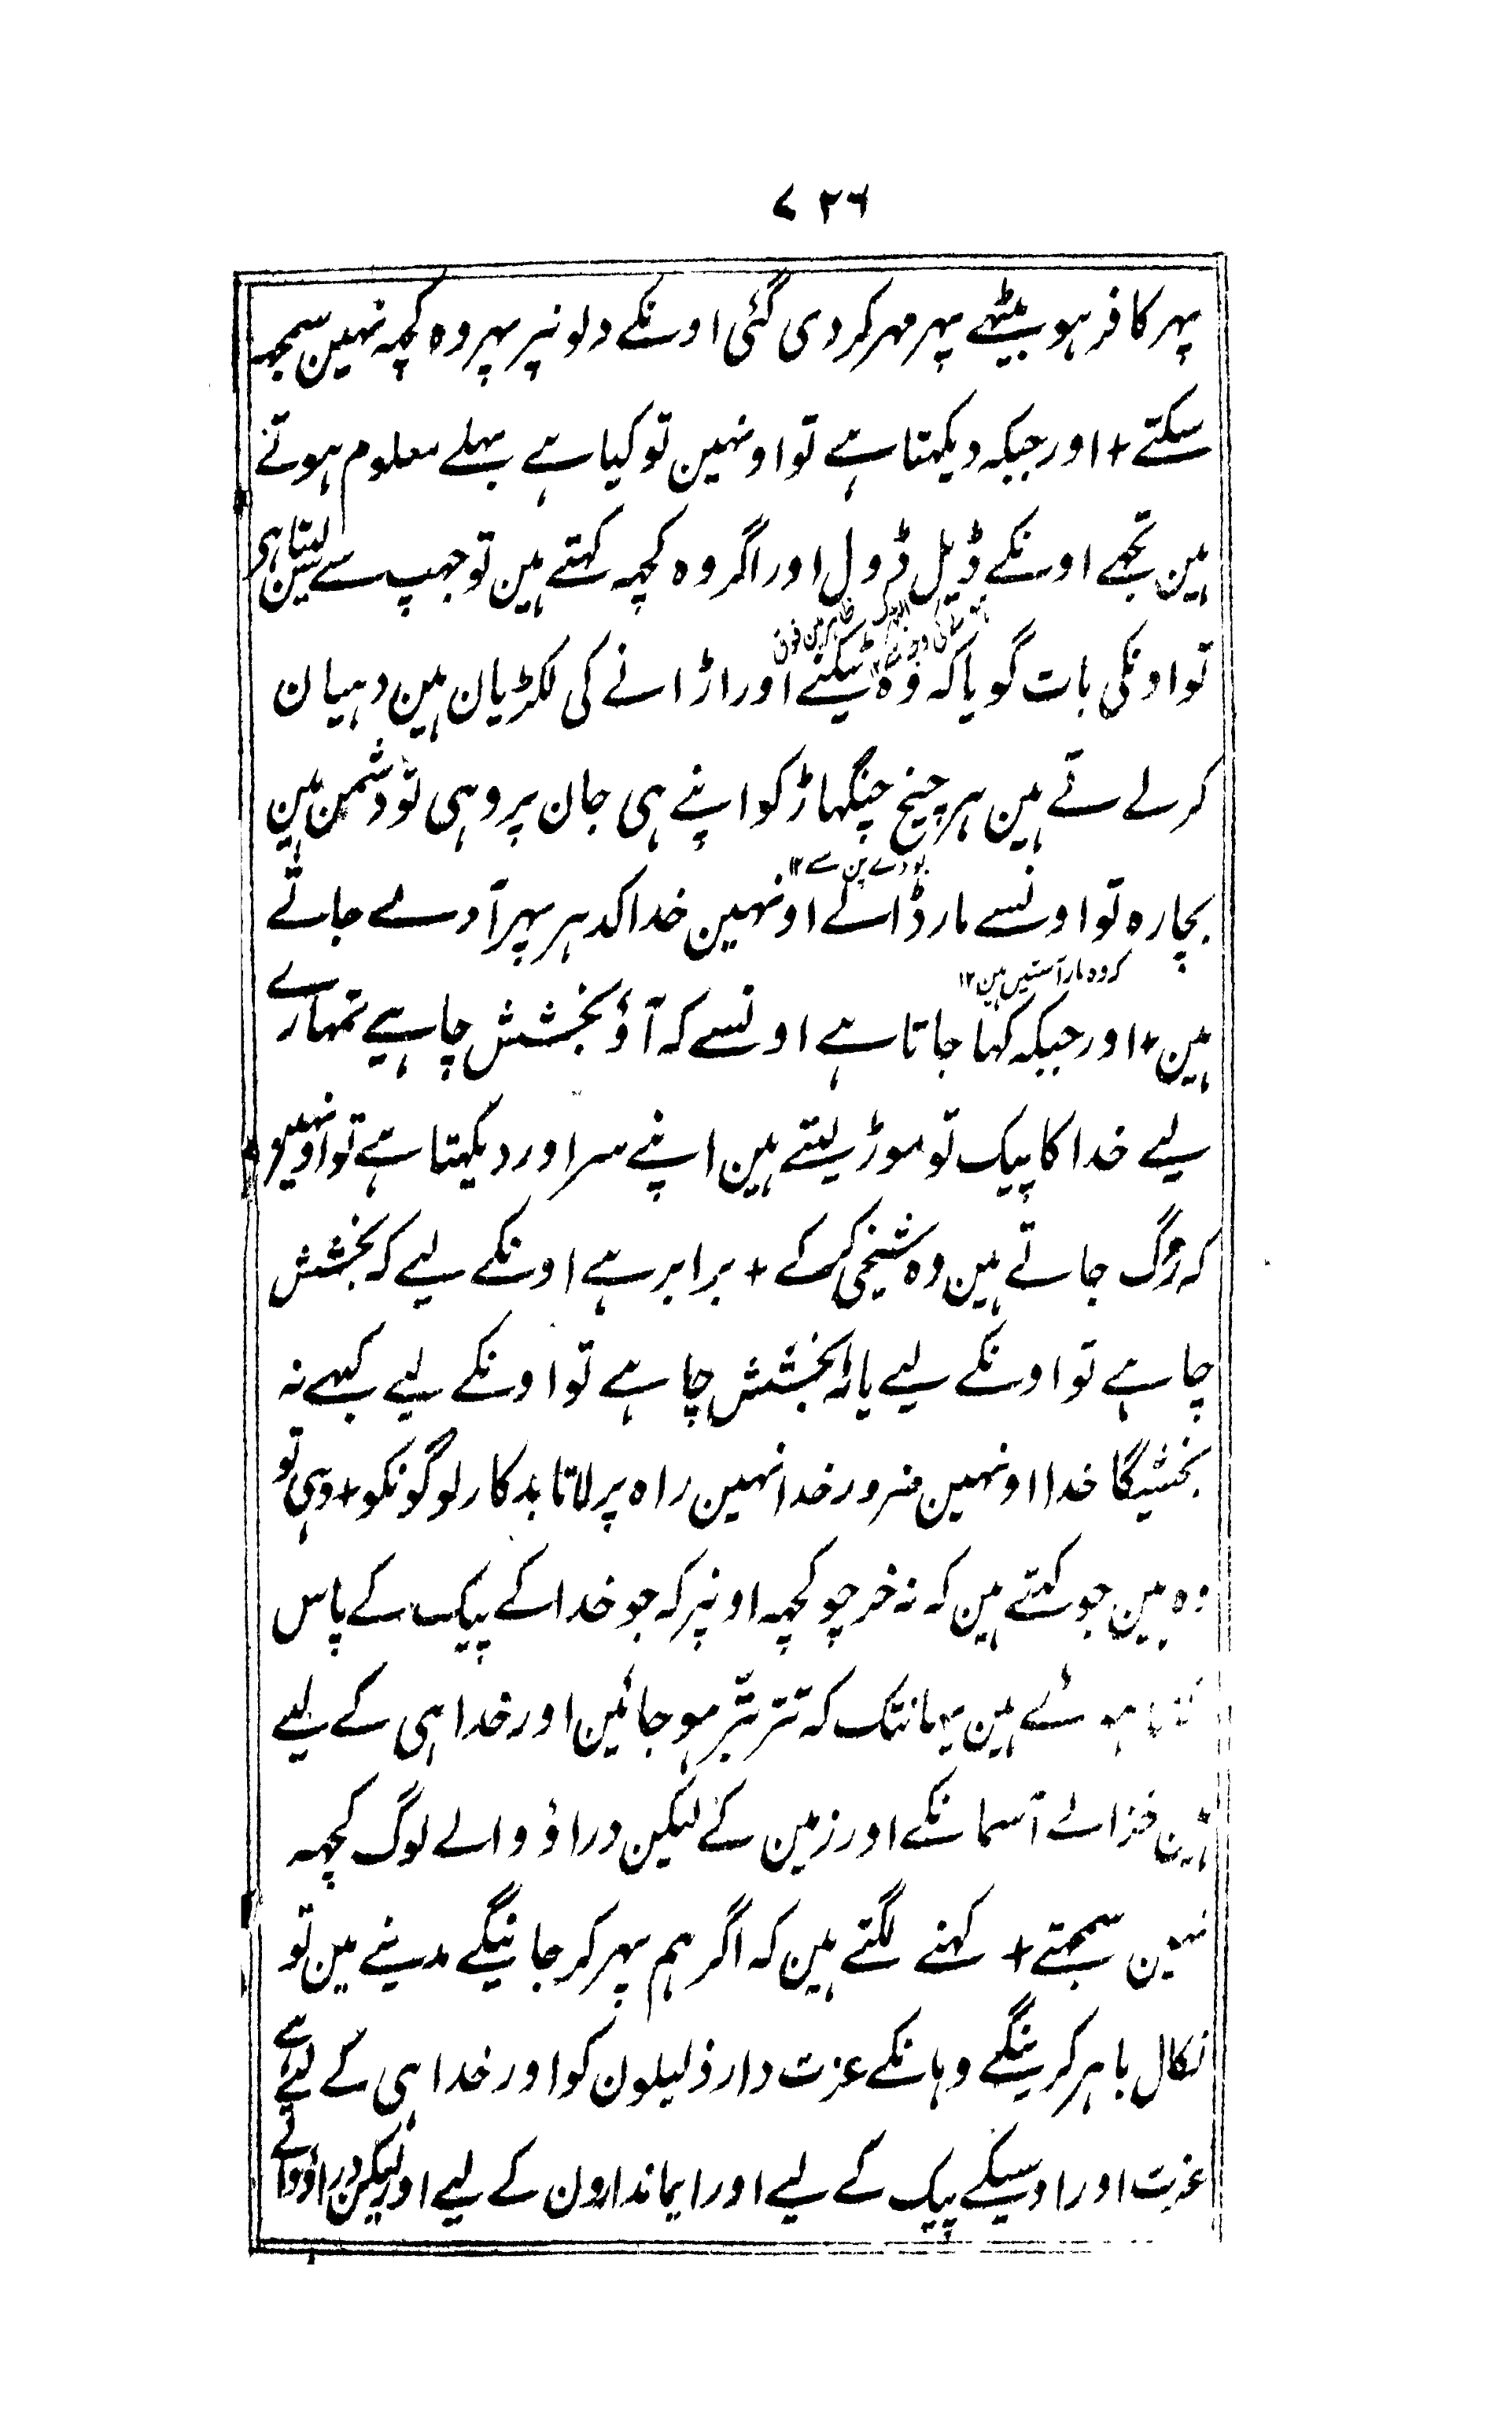 ۷۲۶
پہر کافر ہو بیٹھے پہر مہر کر دی گئی اونکے دلونپر پہر وہ کچہ نہین سمجہ
سکتے + اور جبکہ دیکہتا ہے تو اونہین تو کیا ہے بہلے معلوم ہوتے
ہین تجھے اونکے ڈیل ڈول اور اگر وہ کچہ کہتے ہین تو جہپ سے سن لیتا ہی
تو اونکی بات گویا کہ وہ ٹیکنے اور اڑانے کی لکڑیان ہین دہیان
کر لے تے ہین ہر چیخ چنگہاڑ کو اپنے ہی جان پر وہی تو دشمن ہین
بودے پن سے ۱۲
بچارہ تو اونسے مار ڈالے اونہین خدا کدہر پہر آدہے جاتے
کہ وہ مار آستین ہین ۱۲
ہین + اور جبکہ کہا جاتا ہے اونسے کہ آؤ بخشش چاہیے تمہارے
لیے خدا کا پیک تو موڑ لیتے ہین اپنے سر اور دیکہتا ہے تو اونہین
کہ رگ جاتے ہین وہ شیخی کرکے + برابر ہے اونکے لیے کہ بخشش
چاہے تو اونکے لیے یا نہ بخشش چاہے تو اونکے لیے کبہے نہ
بخشیگا خدا اونہین ضرور خدا نہین راہ پر لاتا بدکار لوگونکو + وہی تو
وہ ہین جو کہتے ہین کہ نہ خرچو کچہہ اونپر کہ جو خدا کے پیک کے پاس
ہوئے ہین یہانتک کہ تتر بتر ہو جائین اور خدا ہی کے لیے
ہین خزانے آسمانکے اور زمین کے لیکن دراؤ والے لوگ کچہہ
نہین سمجہتے + کہنے لگتے ہین کہ اگر ہم پہر کر جائینگے مدینے مین تو
نکال باہر کرینگے وہانکے عزت دار ذلیلون کو اور خدا ہی کے لیے ہے
عزت اور اوسیکے پیک کے لیے اور ایماندارون کے لیے اور لیکن دراؤ والے